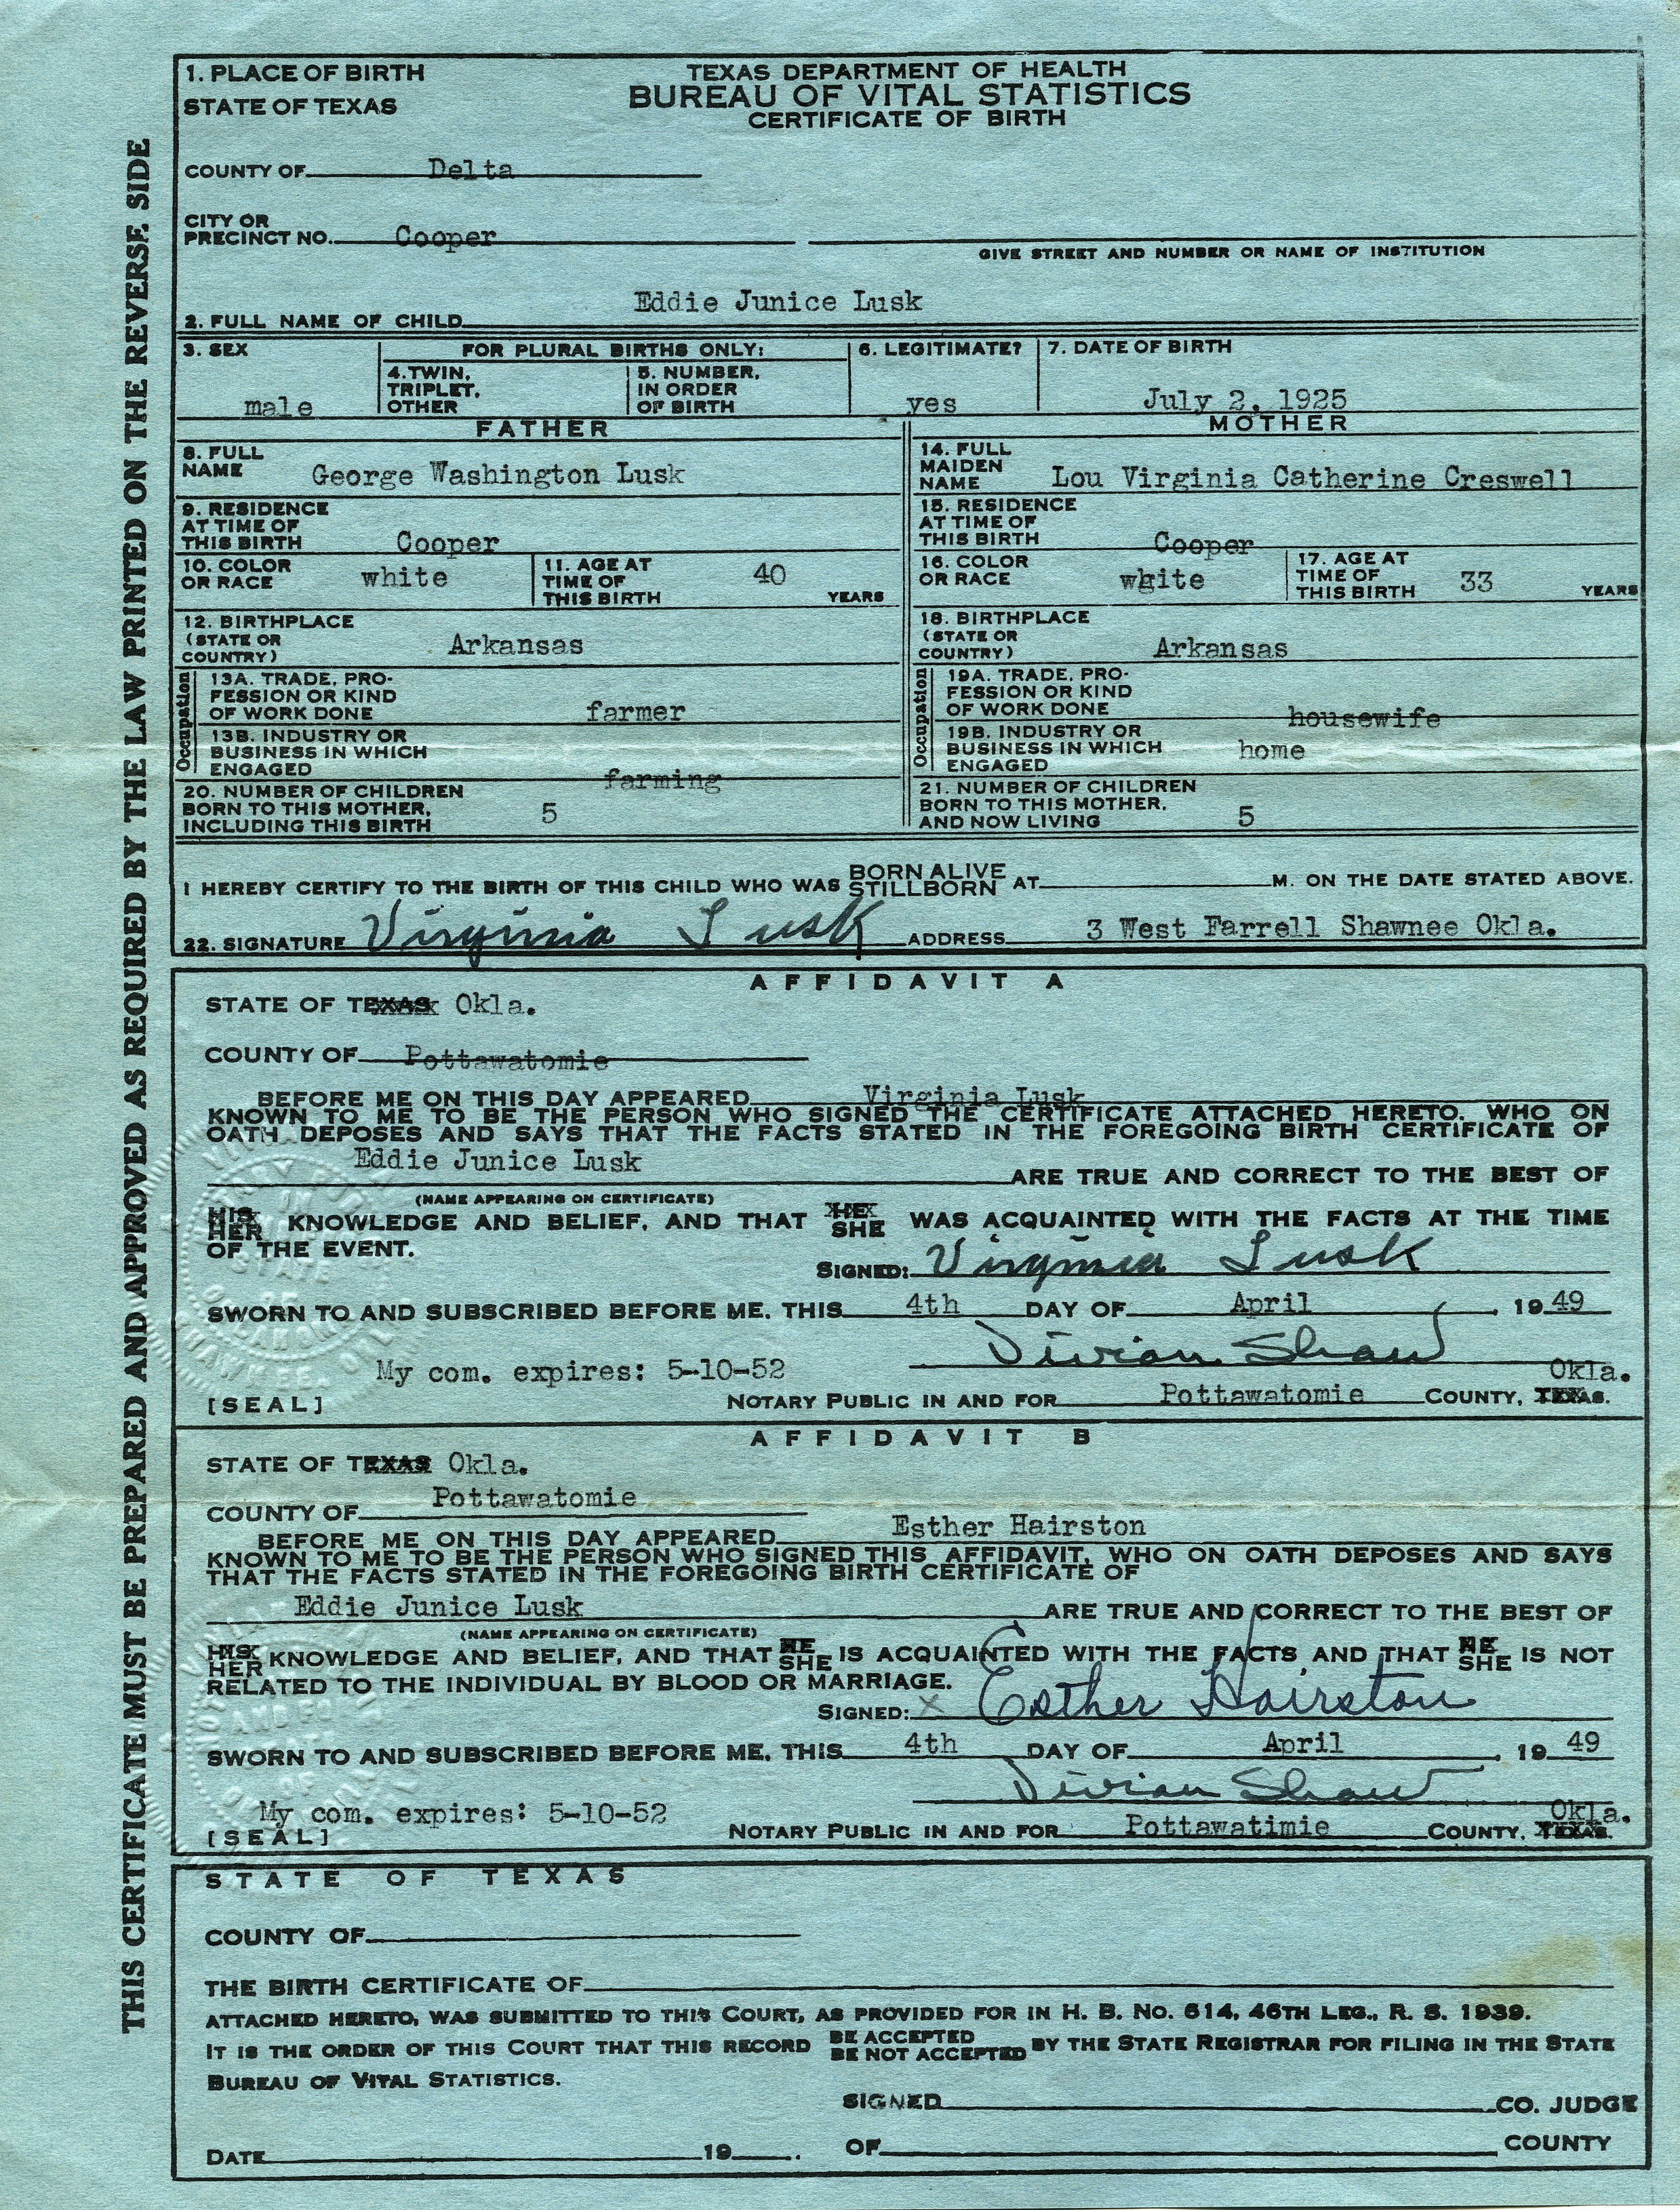 THIS CERTIFICATE MUST BE PREPARED AND APPROVED AS REQUIRED BY THE LAW PRINTED ON THE REVERSE SIDE
1. PLACE OF BIRTH
STATE OF TEXAS
TEXAS DEPARTMENT OF HEALTH
BUREAU OF VITAL STATISTICS
CERTIFICATE OF BIRTH
COUNTY OF Delta
CITY OR
PRECINCT NO. Cooper
GIVE STREET AND NUMBER OR NAME OF INSTITUTION
2. FULL NAME OF CHILD Eddie Junice Lusk
3. SEX
male
FOR PLURAL BIRTHS ONLY:
4. TWIN,
TRIPLET,
OTHER
5. NUMBER,
IN ORDER
OF BIRTH
6. LEGITIMATE?
yes
7. DATE OF BIRTH
July 2, 1925
FATHER
8. FULL
NAME George Washington Lusk
9. RESIDENCE
AT TIME OF
THIS BIRTH Cooper
10. COLOR
OR RACE white
11. AGE AT
TIME OF
THIS BIRTH 40 YEARS
12. BIRTHPLACE
(STATE OR
COUNTRY) Arkansas
Occupation
13A. TRADE, PRO-
FESSION OR KIND
OF WORK DONE farmer
13B. INDUSTRY OR
BUSINESS IN WHICH
ENGAGED farming
20. NUMBER OF CHILDREN
BORN TO THIS MOTHER,
INCLUDING THIS BIRTH 5
MOTHER
14. FULL
MAIDEN
NAME Lou Virginia Catherine Creswell
15. RESIDENCE
AT TIME OF
THIS BIRTH Cooper
16. COLOR
OR RACE wgite
17. AGE AT
TIME OF
THIS BIRTH 33 YEARS
18. BIRTHPLACE
(STATE OR
COUNTRY) Arkansas
Occupation
19A. TRADE, PRO-
FESSION OR KIND
OF WORK DONE housewife
19B. INDUSTRY OR
BUSINESS IN WHICH
ENGAGED home
21. NUMBER OF CHILDREN
BORN TO THIS MOTHER,
AND NOW LIVING 5
I HEREBY CERTIFY TO THE BIRTH OF THIS CHILD WHO WAS BORN ALIVE STILLBORN AT M. ON THE DATE STATED ABOVE.
22. SIGNATURE Virginia Lusk ADDRESS 3 West Farrell Shawnee Okla.
AFFIDAVIT A
STATE OF TEXAS Okla.
COUNTY OF Pottawatomie
BEFORE ME ON THIS DAY APPEARED Virginia Lusk
KNOWN TO ME TO BE THE PERSON WHO SIGNED THE CERTIFICATE ATTACHED HERETO, WHO ON
OATH DEPOSES AND SAYS THAT THE FACTS STATED IN THE FOREGOING BIRTH CERTIFICATE OF
Eddie Junice Lusk ARE TRUE AND CORRECT TO THE BEST OF
(NAME APPEARING ON CERTIFICATE)
HIS HER KNOWLEDGE AND BELIEF, AND THAT HE SHE WAS ACQUAINTED WITH THE FACTS AT THE TIME
OF THE EVENT.
SIGNED: Virginia Lusk
SWORN TO AND SUBSCRIBED BEFORE ME, THIS 4th DAY OF April, 19 49
Vivian Shaw
My com. expires: 5-10-52
[SEAL] NOTARY PUBLIC IN AND FOR Pottawatomie COUNTY, TEXAS. Okla.
AFFIDAVIT B
STATE OF TEXAS Okla.
COUNTY OF Pottawatomie
BEFORE ME ON THIS DAY APPEARED Esther Hairston
KNOWN TO ME TO BE THE PERSON WHO SIGNED THIS AFFIDAVIT, WHO ON OATH DEPOSES AND SAYS
THAT THE FACTS STATED IN THE FOREGOING BIRTH CERTIFICATE OF
Eddie Junice Lusk ARE TRUE AND CORRECT TO THE BEST OF
(NAME APPEARING ON CERTIFICATE)
HIS HER KNOWLEDGE AND BELIEF, AND THAT HE SHE IS ACQUAINTED WITH THE FACTS AND THAT HE SHE IS NOT
RELATED TO THE INDIVIDUAL BY BLOOD OR MARRIAGE.
SIGNED: X Esther Hairston
SWORN TO AND SUBSCRIBED BEFORE ME, THIS 4th DAY OF April, 19 49
Vivian Shaw
My com. expires: 5-10-52
[SEAL] NOTARY PUBLIC IN AND FOR Pottawatimie COUNTY, TEXAS. Okla.
STATE OF TEXAS
COUNTY OF
THE BIRTH CERTIFICATE OF
ATTACHED HERETO, WAS SUBMITTED TO THIS COURT, AS PROVIDED FOR IN H. B. NO. 614, 46TH LEG., R. S. 1939.
IT IS THE ORDER OF THIS COURT THAT THIS RECORD BE ACCEPTED BE NOT ACCEPTED BY THE STATE REGISTRAR FOR FILING IN THE STATE
BUREAU OF VITAL STATISTICS.
SIGNED CO. JUDGE
DATE 19 . OF COUNTY